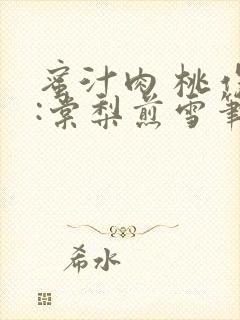 蜜汁肉桃作
:棠梨煎雪筆
希水